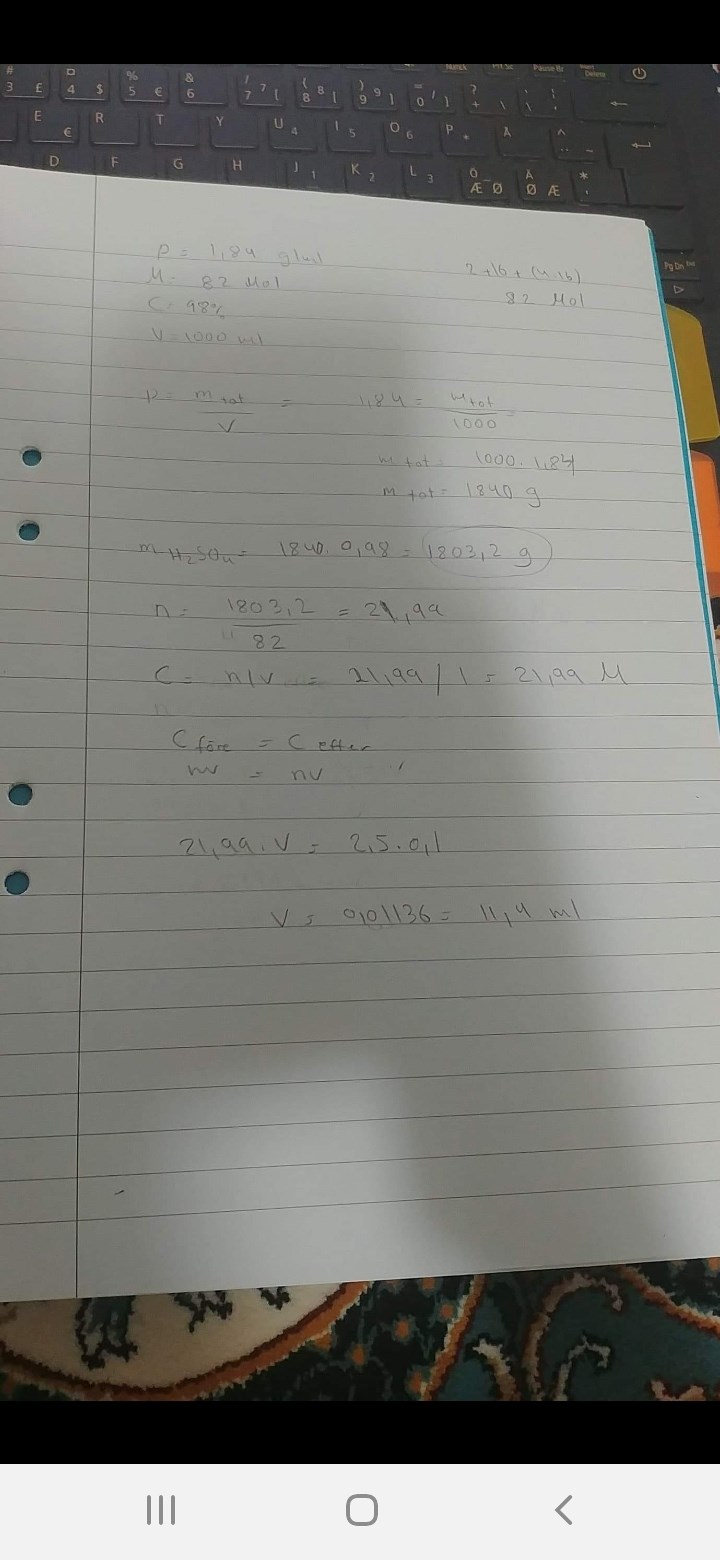 # 3 £ D 4 $ % 5 € & 6 / 7 7 { { 8 8 [ ) 9 9 ] = 0 / } ? + \
E € R T Y U 4 I 5 O 6 P * Å ^ ¨ ~
D F G H J 1 K 2 L 3 Ö Æ Ø Ä Ø Æ * '
Pause Br Delete
Pg Dn
ρ = 1,84 g/ml
M = 82 Mol
C = 98%
V = 1000 ml
2 + 16 + (4.16)
82 Mol
ρ = m tot / V = 1,84 = m tot / 1000
m tot = 1000 . 1,84
m tot = 1840 g
m H2SO4 = 1840. 0,98 = 1803,2 g
n = 1803,2 / 82 = 21,99
C = n/v = 21,99 / 1 = 21,99 M
C före = C efter
nv = nv
21,99 . V = 2,5 . 0,1
V = 0,01136 = 11,4 ml